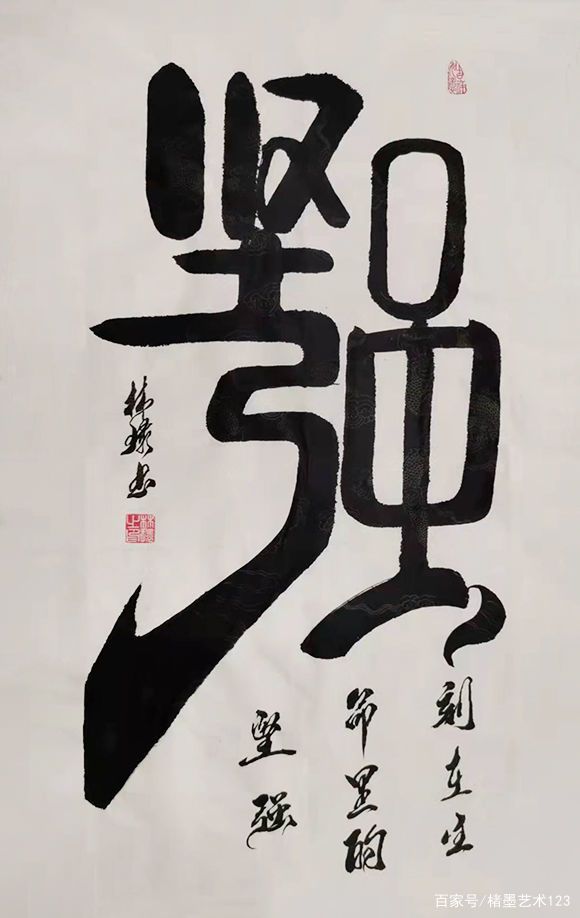 坚强
刻在生
命里的
堅强
林书
百家号/楮墨艺术123